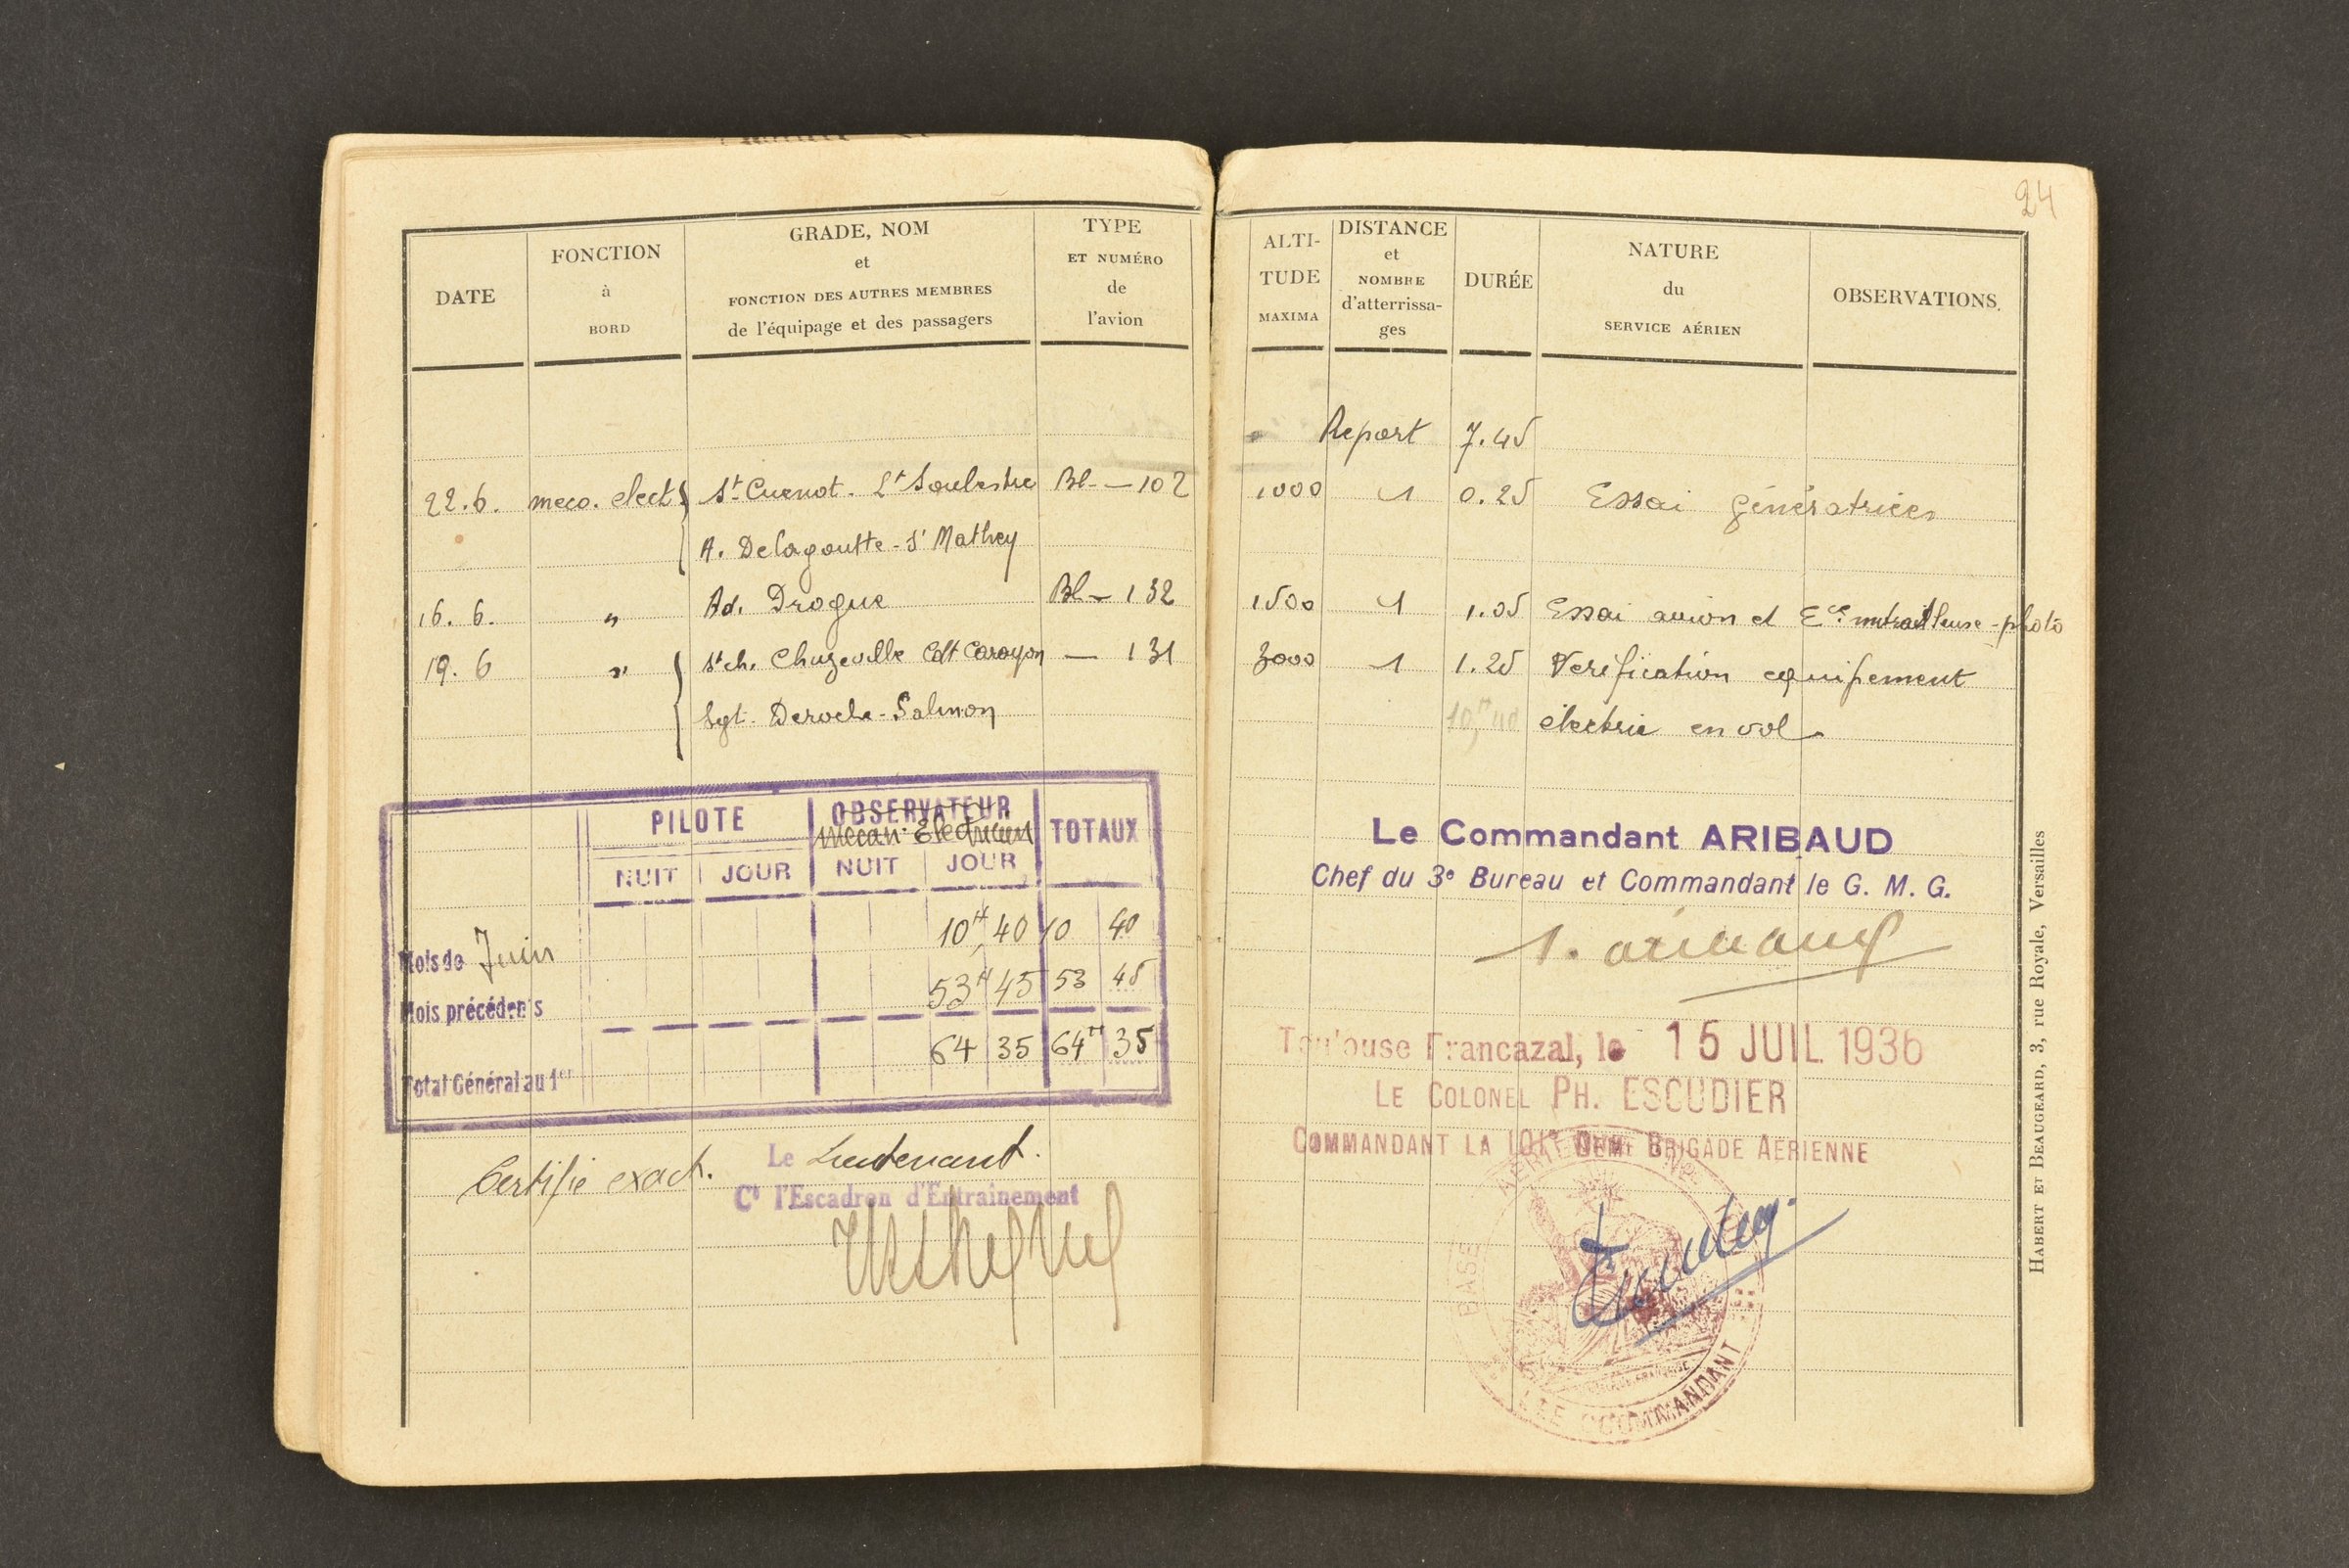 24
DATE
FONCTION
à
BORD
GRADE, NOM
et
FONCTION DES AUTRES MEMBRES
de l'équipage et des passagers
TYPE
ET NUMÉRO
de
l'avion
ALTI-
TUDE
MAXIMA
DISTANCE
et
NOMBRE
d'atterrissa-
ges
DURÉE
NATURE
du
SERVICE AÉRIEN
OBSERVATIONS.
Report 7.45
22.6. meco. elect St Cuenot. Lt Soulestre Bl - — 102 1000 1 0.25 Essai génératrices
A. Delagoutte - St Mathey
16. 6. " Ad. Drogue Bl — 132 1500 1 1.05 Essai avion et Ece mitrailleuse - photo
19. 6 " St ch. Chuzeville Cdt Carayon — 131 3000 1 1.25 Verification equipement
Sgt. Deroche - Salmon 10H40 électrie en vol
PILOTE OBSERVATEUR TOTAUX
mecan. Electricien
NUIT JOUR NUIT JOUR
Mois de Juin 10H 40 10 40
Mois précédents 53H 45 53 45
Total Général au 1er 64 35 64H 35
Certifié exact. Le Lieutenant.
Ct l'Escadron d'Entrainement
Le Commandant ARIBAUD
Chef du 3e Bureau et Commandant le G. M. G.
Toulouse Francazal, le 15 JUIL 1936
LE COLONEL PH. ESCUDIER
COMMANDANT LA 101e DEMI BRIGADE AERIENNE
BASE AERIENNE
LE COMMANDANT
HABERT ET BEAUGEARD, 3, rue Royale, Versailles